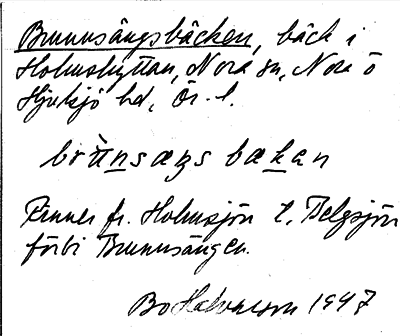 Brunnsängsbäcken, bäck i
Holmshyttan, Nora sn, Nora o
Hjulsjö hd, Ör. l.
brùnsæŋs bækan
Rinner fr. Holmsjön t. Belgsjön
förbi Brunnsängen.
Bo Halvarson 1947